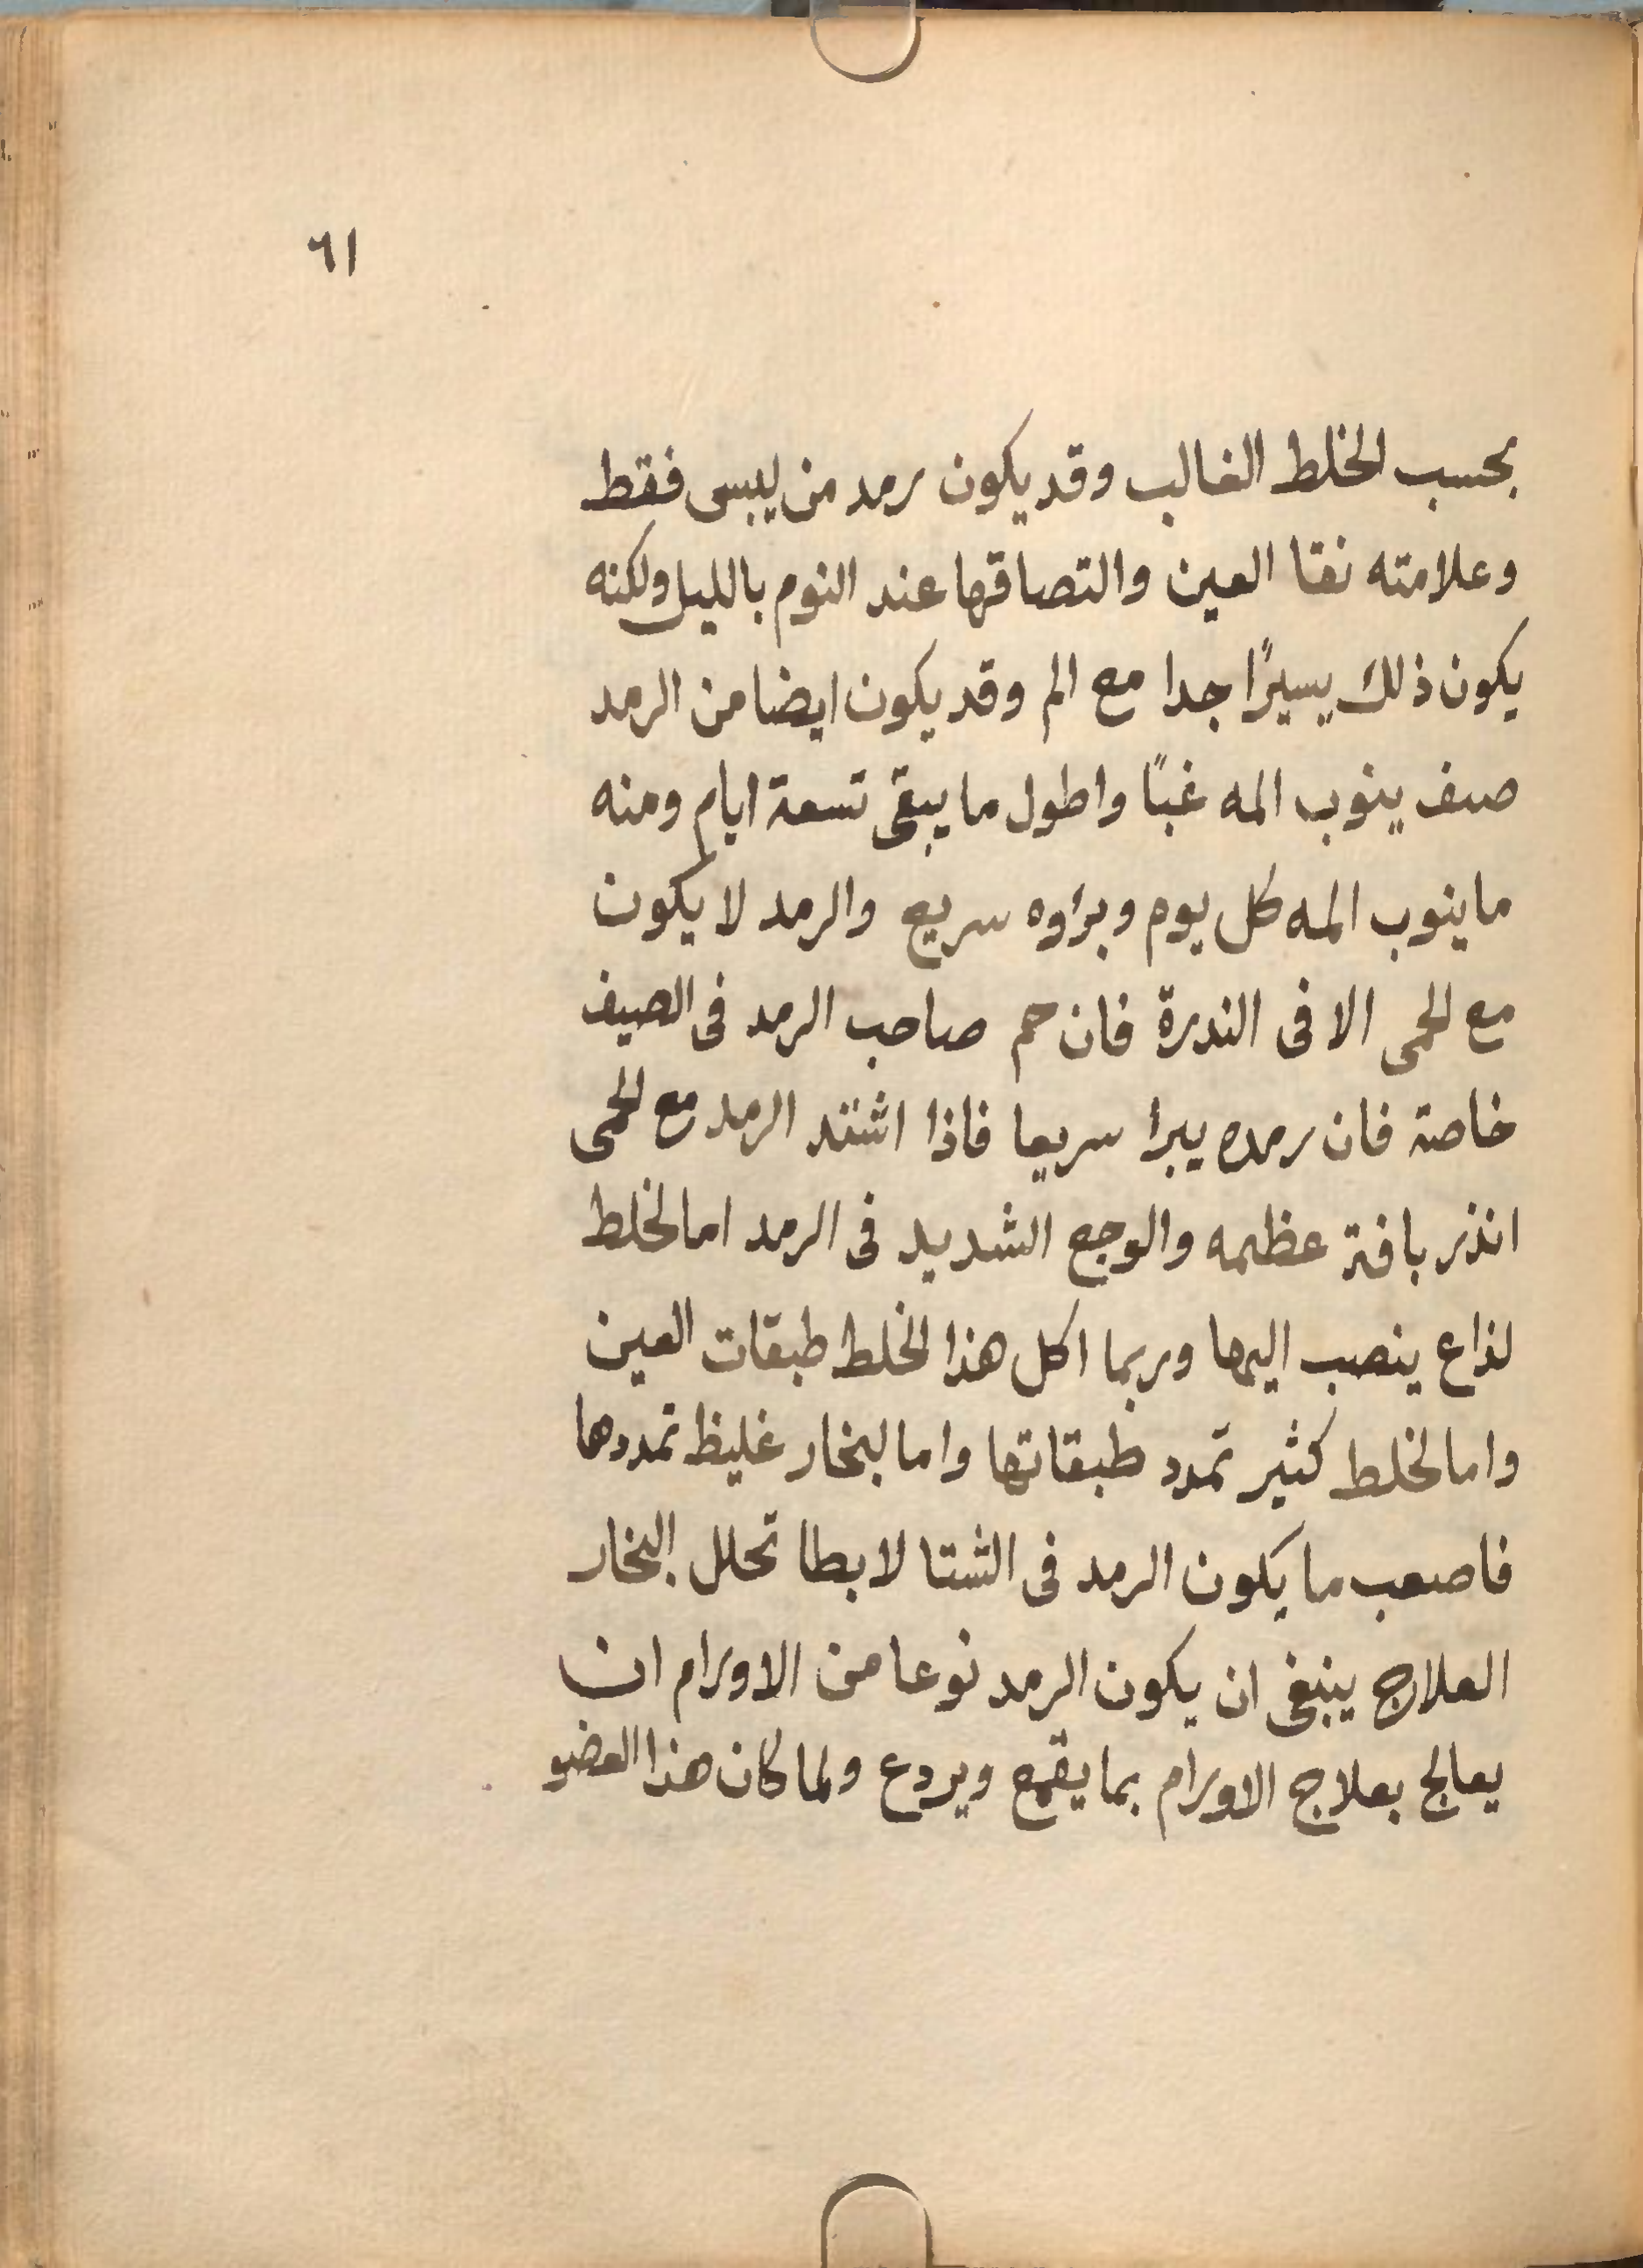 ٦١
بحسب الخلط الغالب وقد يكون رمد من يبس فقط
وعلامته نقا العين والتصاقها عند النوم بالليل ولكنه
يكون ذلك يسيرًا جدا مع الم وقد يكون ايضا من الرمد
صنف ينوب المه غبًا واطول ما يبقى تسعة ايام ومنه
ما ينوب المه كل يوم وبراوه سريع والرمد لا يكون
مع الحمى الا فى الندرة فان حم صاحب الرمد فى الصيف
خاصة فان رمده يبرا سريعا فاذا اشتد الرمد مع الحمى
انذر بافة عظيمه والوجع الشديد فى الرمد اما لخلط
لذاع ينصب اليها وربما اكل هذا الخلط طبقات العين
واما لخلط كثير تمدد طبقاتها واما لبخار غليظ تمددها
فاصعب ما يكون الرمد فى الشتا لابطا تحلل البخار
العلاج ينبغى ان يكون الرمد نوعا من الاورام ان
يعالج بعلاج الاورام بما يقمع ويردع ولما كان هذا العضو